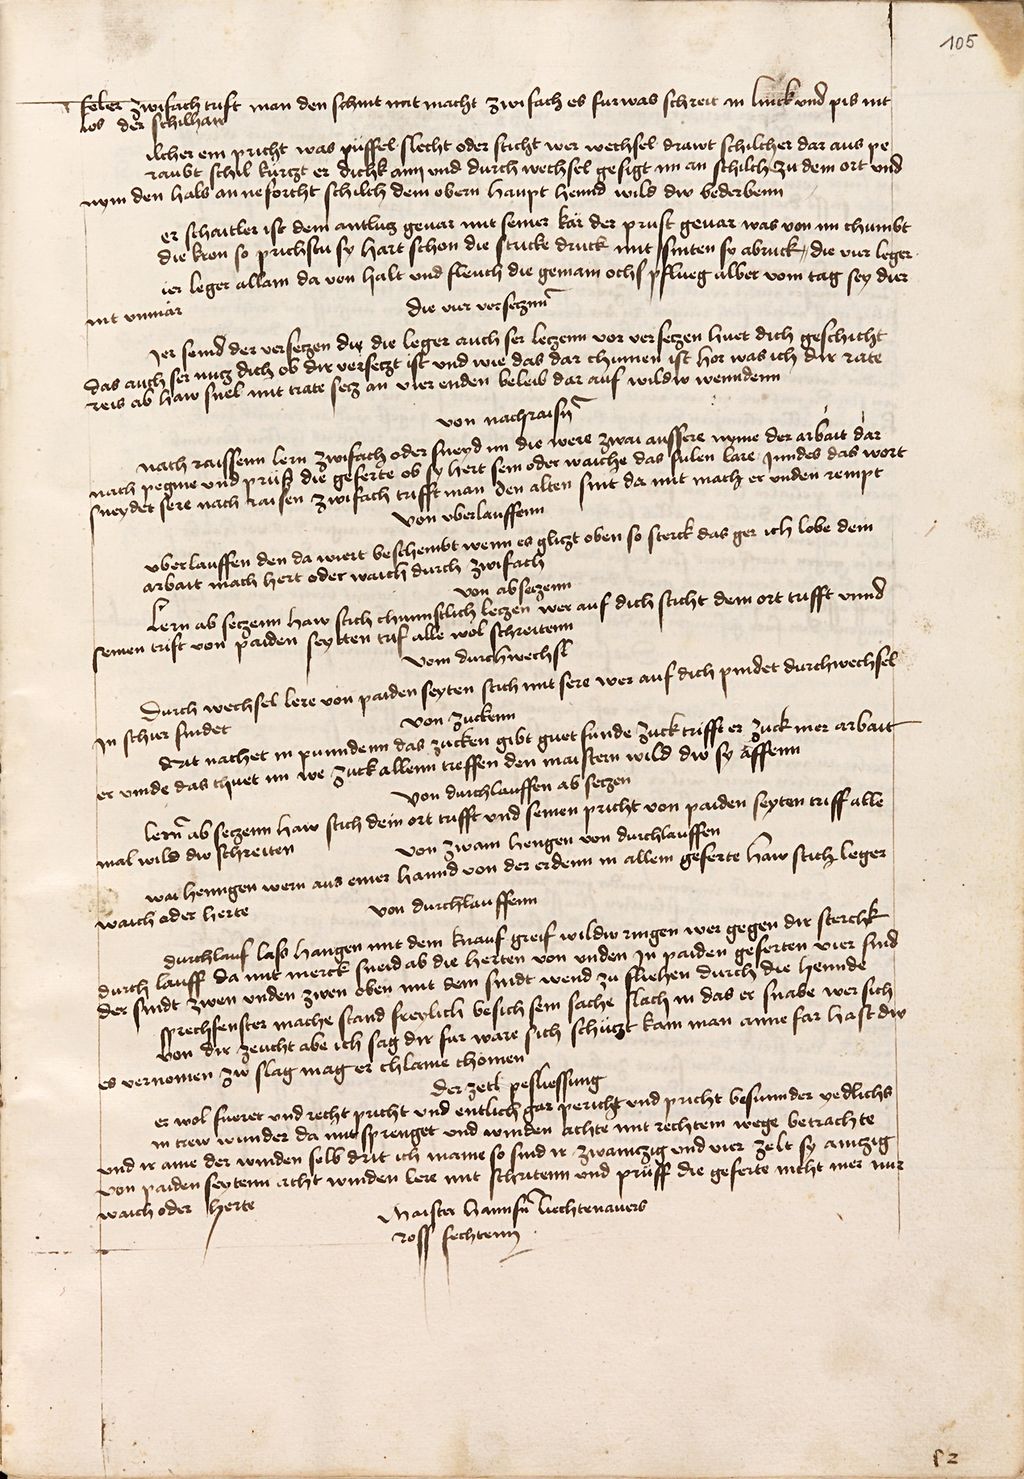 105
feler zwifach trift man den schnit mit macht zwifach es furwas schreit in linck und pis nit
los der schilhaw
ilcher ein pricht was püffel slecht oder sticht wer wechsel drawt schilcher dar aus pe
raubt schil kürczt er dichk ann und durch wechsel gesigt im an schilch zu dem ort und
nym den hals an neforcht schilch dem obern haupt hennd wild dw bederbenn
er schaitler ist dem antlutz gevar mit seiner kar der prust gevar was von im chumbt
die kron so prichstu sy hart schon die stucke druck mit sniten sy abruck die vier leger
ier leger allain da von halt und fleuch die gemain ochs pflueg alber vom tag sey dier
nit unmär die vier versetzenn
ier seind der versetzen die die leger auch ser letzenn vor versetzen huet dich geschicht
das auch ser nutz dich ob dir versetzt ist und wie das dar chumen ist hor was ich dir rate
reis ab haw snel mit trate setz an vier enden beleib dar auf wildw wenndenn
von nachraisn
nach raissenn lern zwifach oder sneyd im die were zwai aussere nyme der arbait dar
nach pegine und prüff die geferte ob sy hert sein oder waiche das fulen lare Inndes das wort
sneydet sere nach raisen zwifach trifft man den alten snit da mit mach er unden rempt
von uberlauffenn
uberlauffen den da wiert beschembt wenn es gliczt oben so sterck das ger ich lobe dem
arbait mach hert oder waich durch zwifach
von absetzenn
Lern ab setzenn haw stich chunnstlich letzen wer auf dich sticht dein ort trifft unnd
seinen trift von paiden seytten trif alle wol schreitenn
vom durchwechsl
Durch wechsel lere von paiden seyten stich mit sere wer auf dich pindet durchwechsel
In schier findet von zuckenn
drit nachet in punndenn das zucken gibt guet funde zuck trifft er zuck mer arbait
er vinde das thuet im we zuck allenn treffen den maistern wild dw sy äffenn
von durchlauffen ab setzen
lern ab setzenn haw stich dein ort trifft und seinen pricht von paiden seyten triff alle
mal wild dw schreiten von zwain hengen von durchlauffen
wai henngen wern aus einer hannd von der erdenn in allem geferte haw stich leger
waich oder herte von durchlauffenn
durchlauf lass hangen mit dem knauf greif wildw ringen wer gegen dir sterchk
durch lauff da mit merck sneid ab die herten von unden In paiden geferten vier sind
der snidt zwen unden zwen oben mit dem snidt wend zu fliehen durch die hennde
sprechfenster mache stand freylich besich sein sache slach in das er snabe wer sich
von dir zeucht abe ich sag dir fur ware sich schützt kain man anne far hast dw
es vernomen zw slag mag er chlaine chomen
der zetl pesliessung
er wol fueret und recht pricht und entlich gar pericht und pricht besunnder yedlichs
in trew wunder da mit sprenget und winden achte mit rechtem wege betrachte
und ir aine der winden selb drit ich maine so sind ir zwainczig und vier zelt sy ainczig
von paiden seytenn acht winden lere mit schritenn und prüff die geferte nicht mer nur
waich oder herte
Maister hannsn Liechtenauers
ross fechtenn
p 2